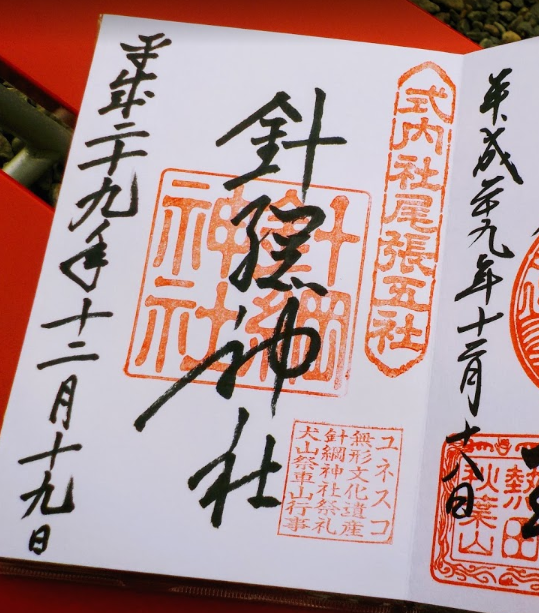 平成二十九年十二月十八日
熱田
秋葉山
式内社尾張五社
針綱神社
針綱
神社
ユネスコ
無形文化遺産
針綱神社祭礼
犬山祭車山行事
平成二十九年十二月十九日